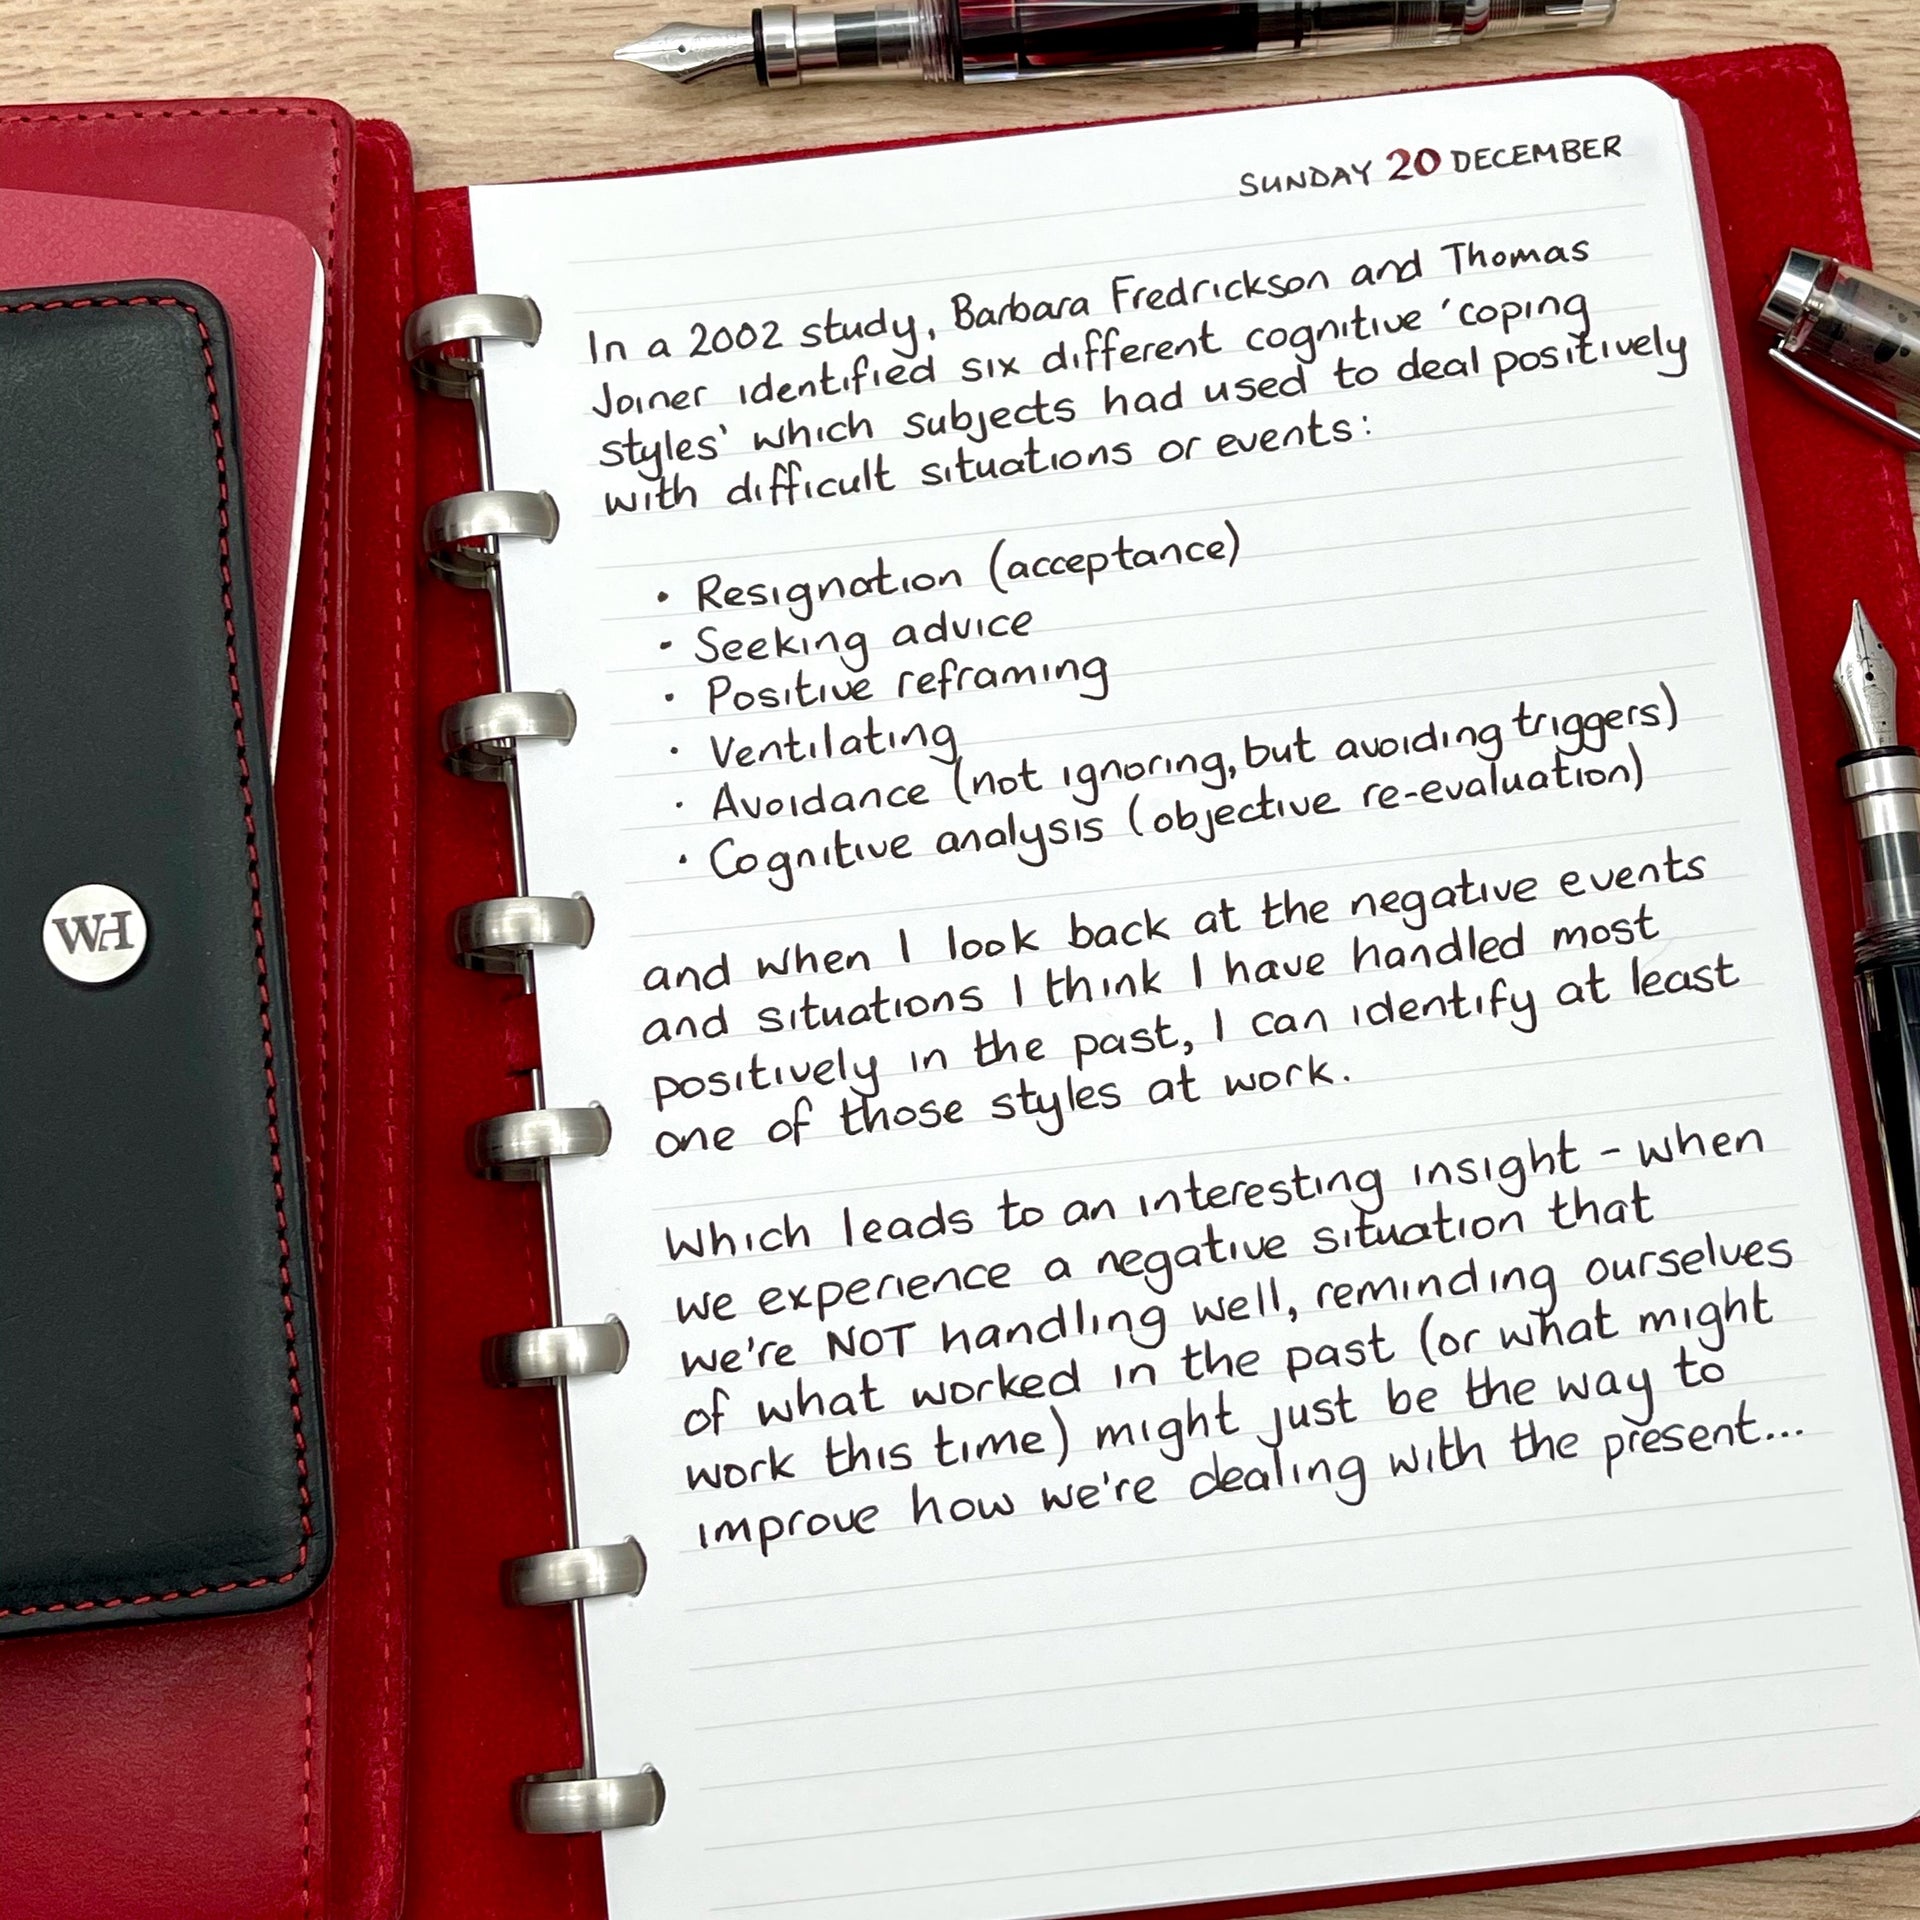 SUNDAY 20 DECEMBER
In a 2002 study, Barbara Fredrickson and Thomas
Joiner identified six different cognitive 'coping
styles' which subjects had used to deal positively
with difficult situations or events:
• Resignation (acceptance)
• Seeking advice
• Positive reframing
• Ventilating
• Avoidance (not ignoring, but avoiding triggers)
• Cognitive analysis (objective re-evaluation)
and when I look back at the negative events
and situations I think I have handled most
positively in the past, I can identify at least
one of those styles at work.
Which leads to an interesting insight - when
we experience a negative situation that
we're NOT handling well, reminding ourselves
of what worked in the past (or what might
work this time) might just be the way to
improve how we're dealing with the present...
WH